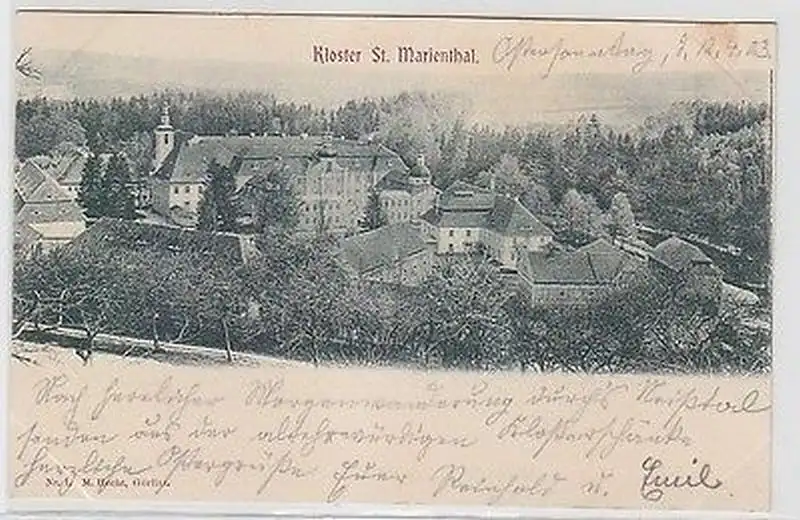 Kloster St. Marienthal.
Ostersonntag, d. 12.4.03.
Nach herrlicher Morgenwanderung durch's Neißtal
senden aus der altehrwürdigen Klosterschänke
herzliche Ostergrüße Euer Reinhold u. Emil.
No. 1. M. Hecht, Görlitz.